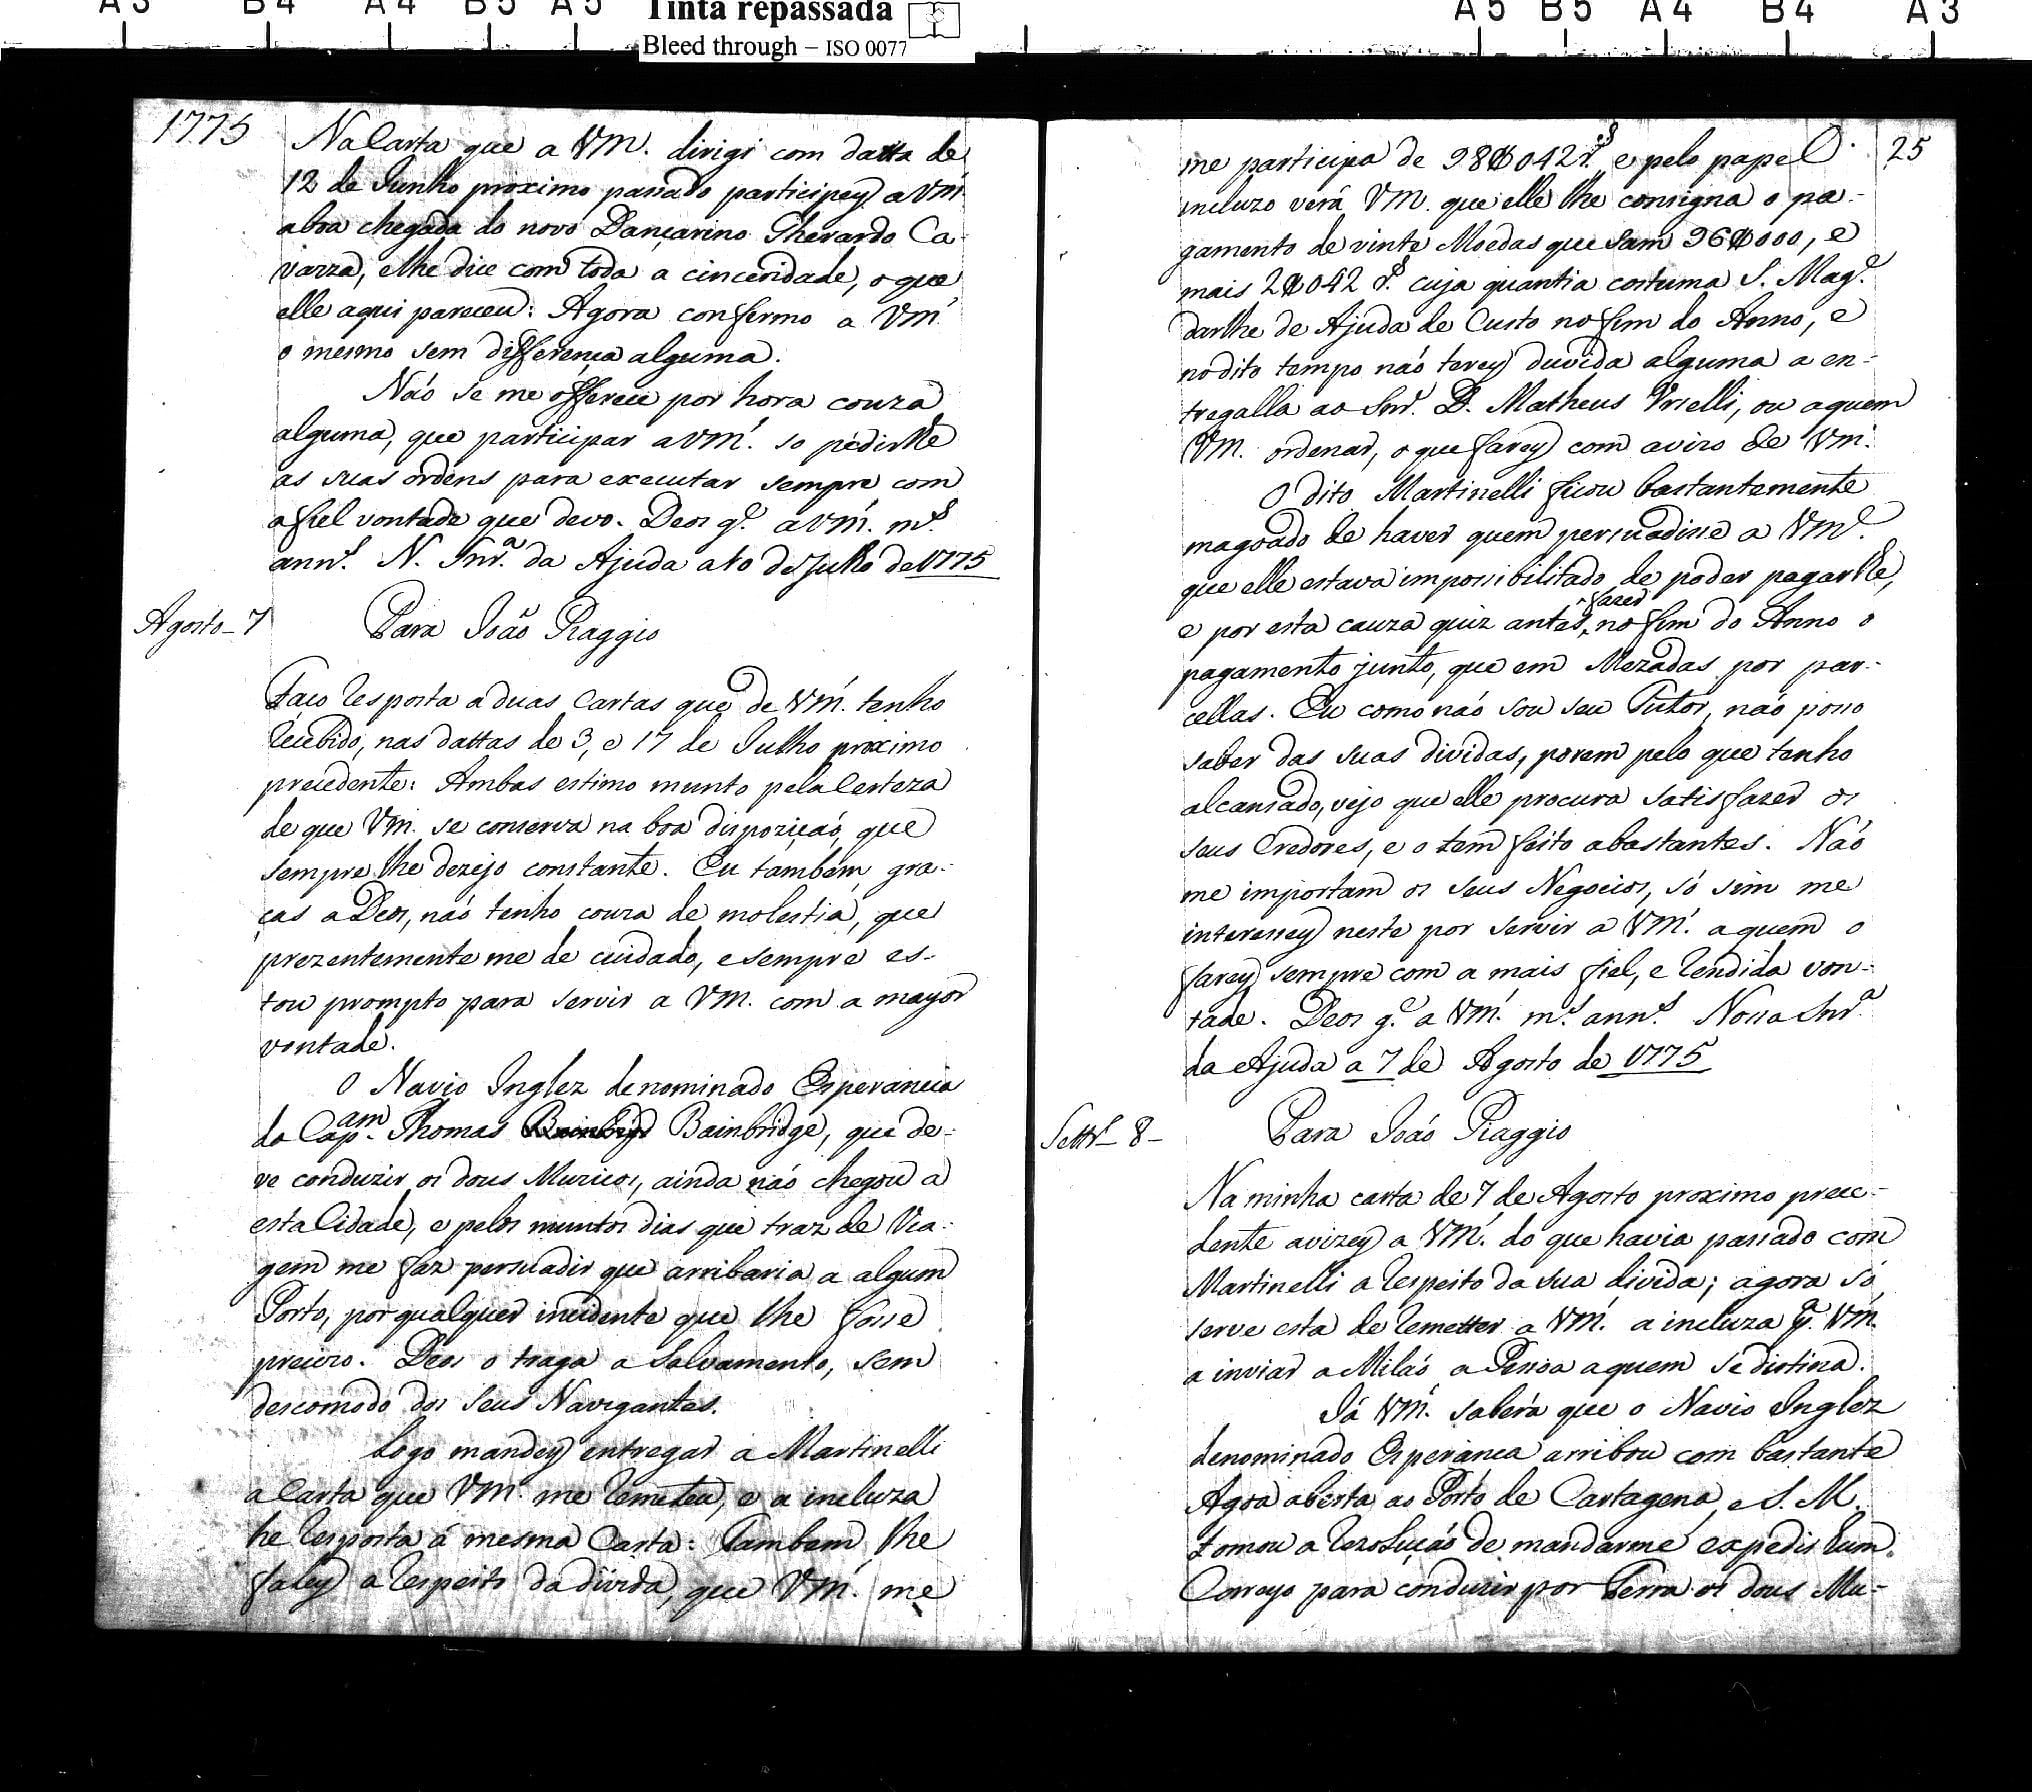 A3 B4 A4 B5 A5 Tinta repassada A5 B5 A4 B4 A3
Bleed through – ISO 0077
1775
Na Carta que a VM. dirigi com datta de
12 de Junho proximo passado participey a VM.
a boa chegada do novo Dançarino Gherardo Ca-
varza, e lhe dice com toda a cinceridade, o que
elle aqui pareceu: Agora confermo a VM.
o mesmo sem differença alguma.
Não se me offerece por hora couza
alguma, que participar a VM. so pedirlhe
as suas ordens para executar sempre com
a fiel vontade que devo. Deos g.e a VM. m.s
ann.s N. Snr.a da Ajuda a 10 de Julho de 1775
Agosto_7
Para João Piaggio
Faço resposta a duas Cartas que de VM. tenho
recebido, nas dattas de 3, e 17 de Julho proximo
precedente: Ambas estimo munto pela Certeza
de que VM. se conserva na boa dispozição, que
sempre lhe dezejo constante. Eu também, gra-
ças a Deos, não tenho couza de molestia, que
prezentemente me de cuidado, e sempre es-
tou prompto para servir a VM. com a mayor
vontade.
O Navio Inglez denominado Esperancia
do Cap.am Thomas Bainbridge, que de-
ve conduzir os dous Muzicos, ainda não chegou a
esta Cidade, e pelos muntos dias que traz de Via-
gem me faz persuadir que arribaria a algum
Porto, por qualquer incidente que lhe fosse
precizo. Deos o traga a Salvamento, sem
descomodo dos seus Navigantes.
Logo mandey entregar a Martinelli
a Carta que VM. me remeteu, e a incluza
he resposta á mesma Carta: Tambem lhe
faley a respeito da divida, que VM. me
25
me participa de 98$042 r.s e pelo papel
incluzo verá VM. que elle lhe consigna o pa-
gamento de vinte Moedas que sam 96$000, e
mais 2$042 r.s cuja quantia costuma S. Mag.e
darlhe de Ajuda de Custo no fim do Anno, e
no dito tempo não terey duvida alguma a en-
tregalla ao Snr. D. Matheus Vrielli, ou a quem
VM. ordenar, o que farey com avizo de VM.
O dito Martinelli ficou bastantemente
magoado de haver quem persuadisse a VM.ce
que elle estava impossibilitado de poder pagarlhe,
fazer
e por esta cauza quiz antes, no fim do Anno o
pagamento junto, que em Mezadas por par-
cellas. Eu como não sou seu Tutor, não posso
saber das suas dividas, porem pelo que tenho
alcansado, vejo que elle procura satisfazer os
seus Credores, e o tem feito a bastantes. Não
me importam os seus Negocios, só sim me
interessey neste por servir a VM. a quem o
farey sempre com a mais fiel, e rendida von-
tade. Deos g.e a VM. m.s ann.s Nossa Snr.a
da Ajuda a 7 de Agosto de 1775
Settr.o 8_
Para João Piaggio
Na minha carta de 7 de Agosto proximo prece-
dente avizey a VM. do que havia passado com
Martinelli a respeito da sua divida; agora só
serve esta de remetter a VM. a incluza p.a VM.
a inviar a Milão a Pessoa a quem se distina.
Já VM. saberá que o Navio Inglez
denominado Esperança arribou com bastante
Agoa aberta ao Porto de Cartagena, e S. M.
tomou a rezolução de mandarme expedir hum
Correyo para conduzir por Terra os dous Mu-